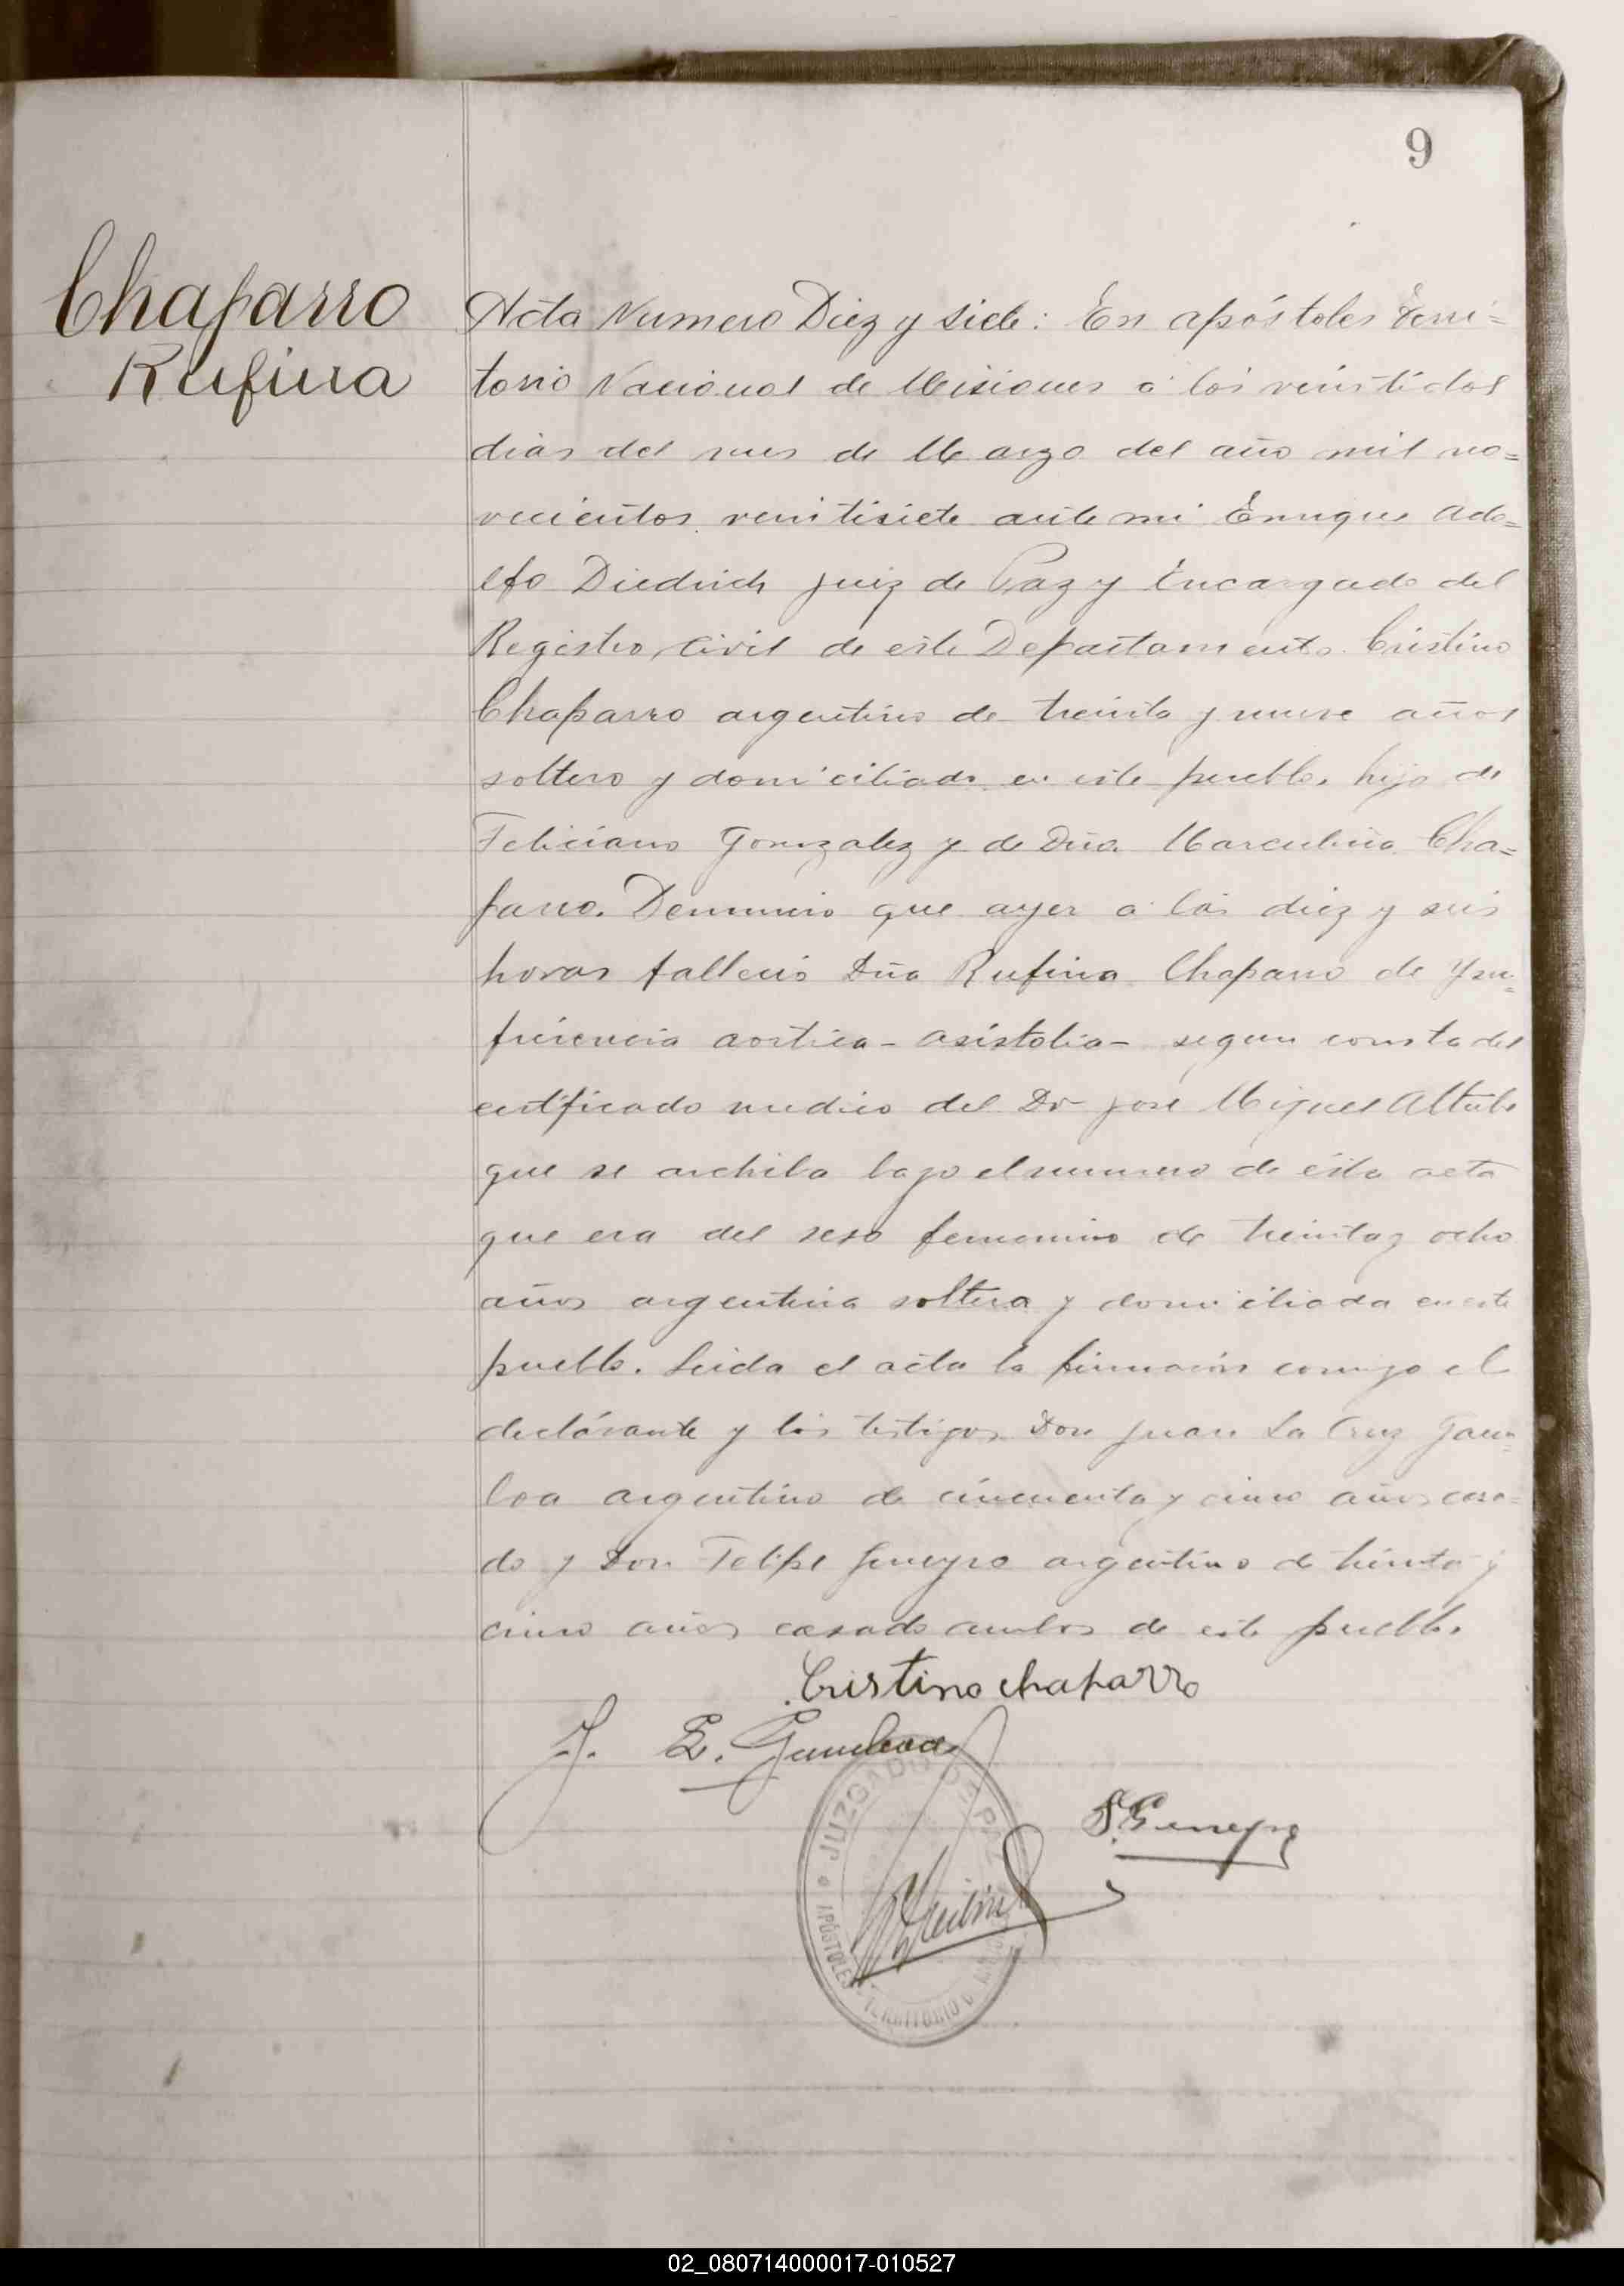 9
Chaparro
Rufina
Acta Numero Diez y siete: En apóstoles Terri=
torio Nacional de Misiones a los veintidos
dias del mes de Marzo del año mil no=
vecientos veintisiete ante mi Enrique Ado=
lfo Diedrich Juez de Paz y Encargado del
Registro Civil de este Departamento Cristino
Chaparro argentino de treinta y nueve años
soltero y domiciliado en este pueblo, hijo de
Feliciano Gonzalez y de Dña Marculina Cha=
parro. Denuncio que ayer a las diez y seis
horas fallecio Dña Rufina Chaparro de Ynsu=
ficiencia aortica - asistolia - segun consta del
certificado medico del Dr Jose Miguel Altube
que se archiba bajo el numero de esta acta
que era del sexo femenino de treinta y ocho
años argentina soltera y domiciliada en este
pueblo. Leida el acta la firmaron conmigo el
declarante y los testigos Don Juan La Cruz Gam=
boa argentino de cincuenta y cinco años casa=
do y Don Felipe Geneyro argentino de treinta y
cinco años casado ambos de este pueblo.
Cristino chaparro
J. L. Gamboa
JUZGADO DE PAZ
APÓSTOLES TERRITORIO
02_080714000017-010527